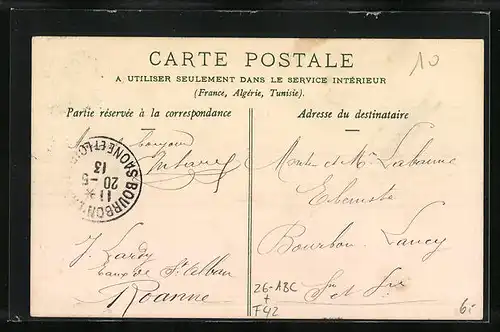 CARTE POSTALE
A UTILISER SEULEMENT DANS LE SERVICE INTÉRIEUR
(France, Algérie, Tunisie).
10
Partie réservée à la correspondance
Adresse du destinataire
bonjour
S-BOURBON
SAONE-ET-LO
11 *
20-5
13
J. Lardy
de St Alban
Roanne
et Mme Labaume
Ebéniste
Bourbon Lancy
Sne et Lre
26-ABC
+
F42
6.-